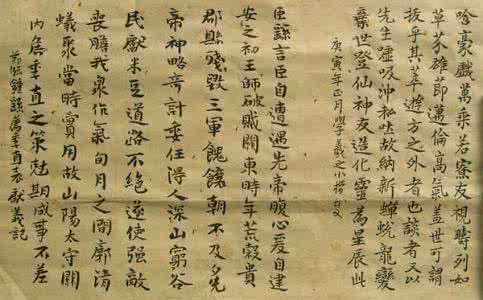 哈豪戲萬乘若寮友視疇列如
草芥雄節邁倫高氣蓋世可謂
拔乎其萃遊方之外者也談者又以
先生噓吸沖和吐故納新蟬蛻龍變
棄世登仙神友造化靈為星辰此
庚寅年正月學羲之小楷
臣繇言臣自遭遇先帝腹心爰自建
安之初王師破賊關東時年荒穀貴
郡縣殘毀三軍餽饟朝不及夕先
帝神略奇計委任得人深山窮谷
民獻米豆道路不絕遂使強敵
喪膽我衆作氣旬月之間廓清
蟻聚當時實用故山陽太守關
內侯季直之策剋期成事不差
節臨鍾繇薦季直表